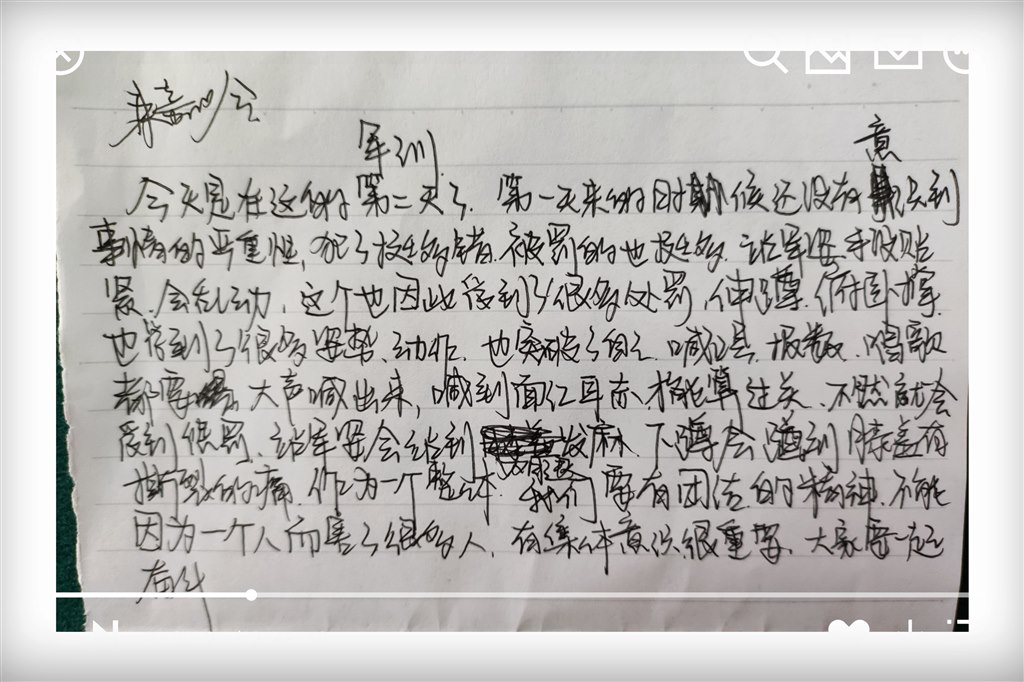 军训 意
今天是在这的第二天了. 第一天来的时期候还没有识到
事情的严重性, 犯了挺多错. 被罚的也挺多. 站军姿手没贴
紧. 会乱动, 这个也因此受到了很多处罚, 伸蹲. 俯卧撑.
也学到了很多姿势. 动作. 也突破了自己. 喊口号. 报数. 唱歌
都要 大声喊出来, 喊到面红耳赤, 才能算过关. 不然就会
受到惩罚. 站军姿会站到 发麻. 下蹲会蹲到膝盖有
撕裂的痛. 作为一个整体. 我们要有团结的精神. 不能
因为一个人而害了很多人, 有集体意识很重要. 大家要一起
奋斗